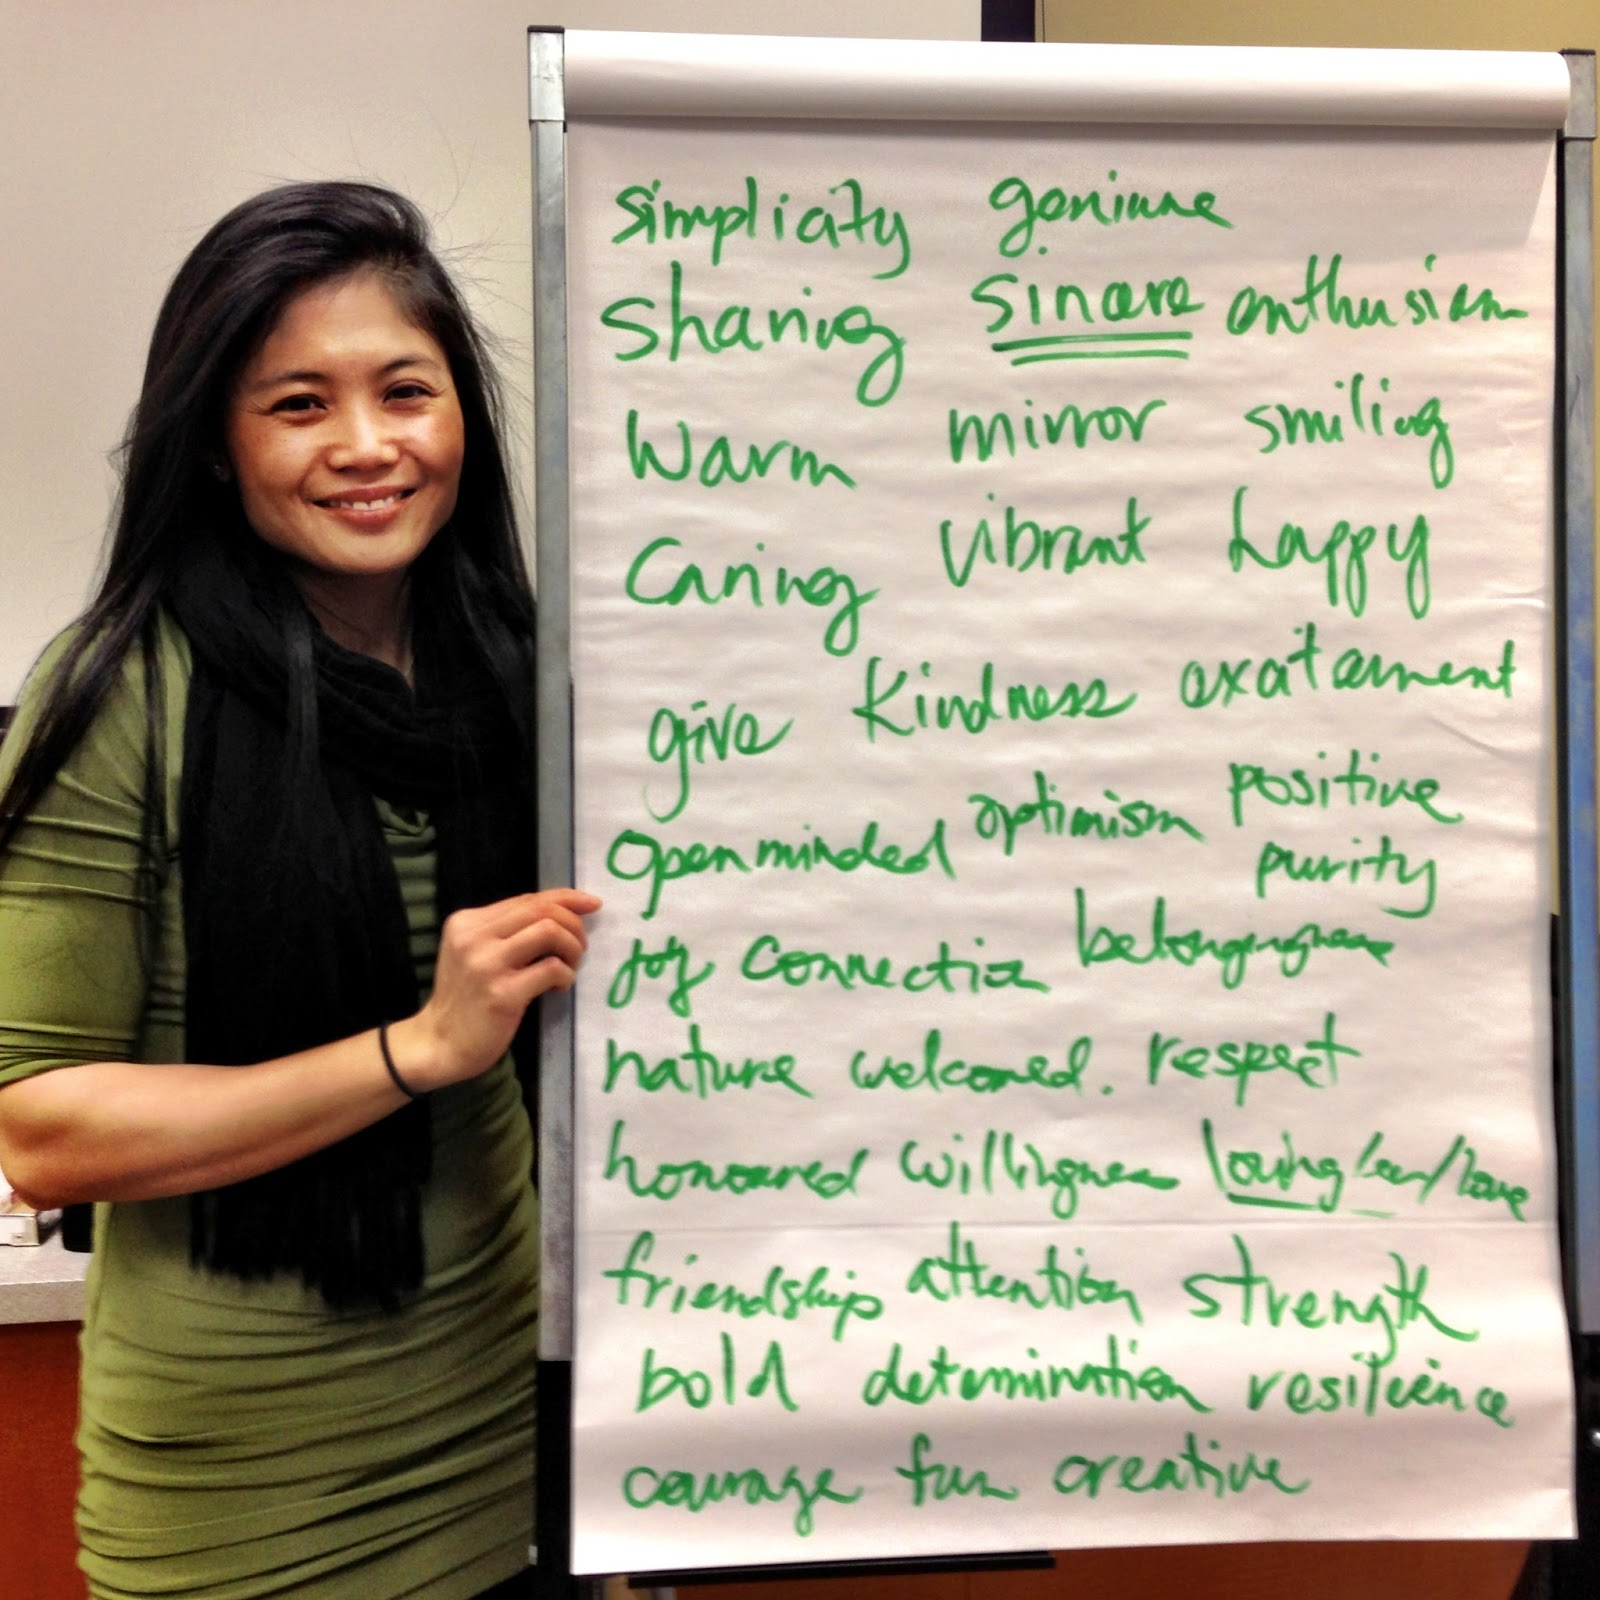 simplicity geniune
sharing sincere enthusiasm
warm mirror smiling
Caring Vibrant happy
give Kindness excitement
Openminded optimism positive
purity
joy connection belongingness
nature welcomed. respect
honoured willingness loving / love
friendship attention strength
bold determination resilience
courage fun creative